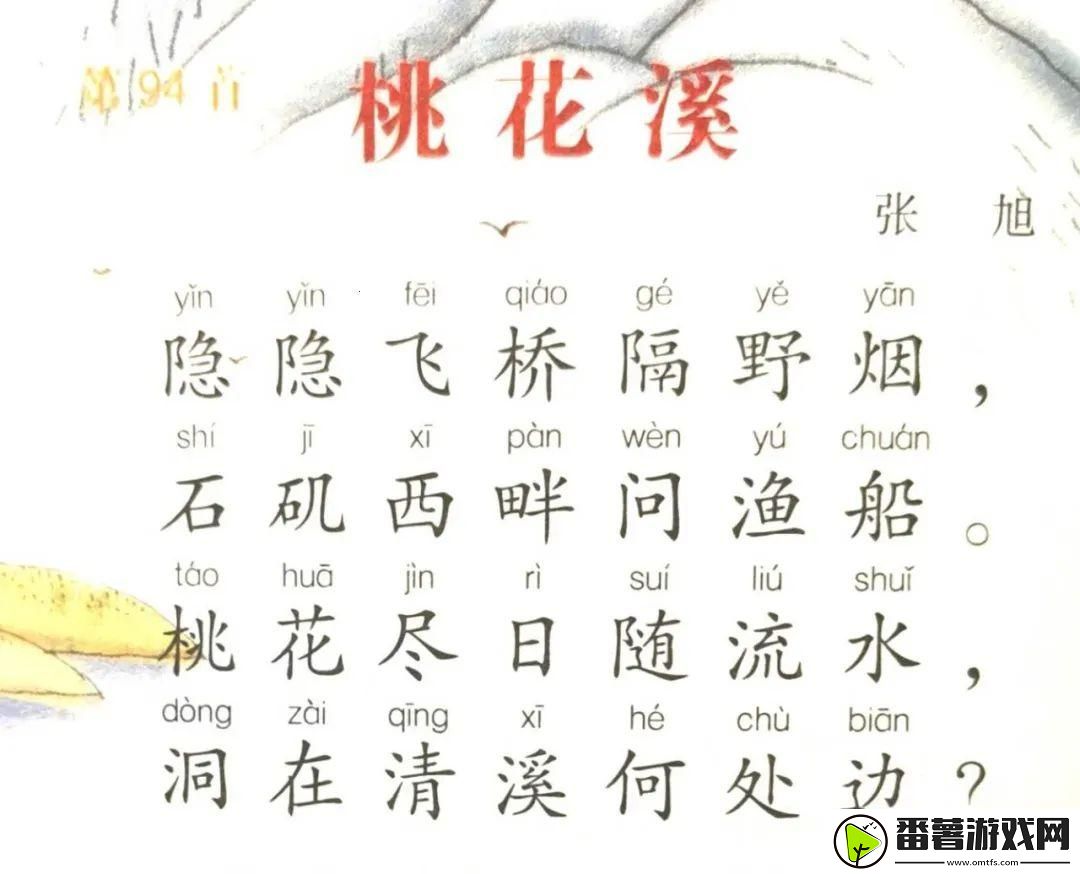 第94首
桃花溪
张 旭
yǐn yǐn fēi qiáo gé yě yān
隐隐飞桥隔野烟，
shí jī xī pàn wèn yú chuán
石矶西畔问渔船。
táo huā jìn rì suí liú shuǐ
桃花尽日随流水，
dòng zài qīng xī hé chù biān
洞在清溪何处边？
番薯游戏网
www.omtfs.com